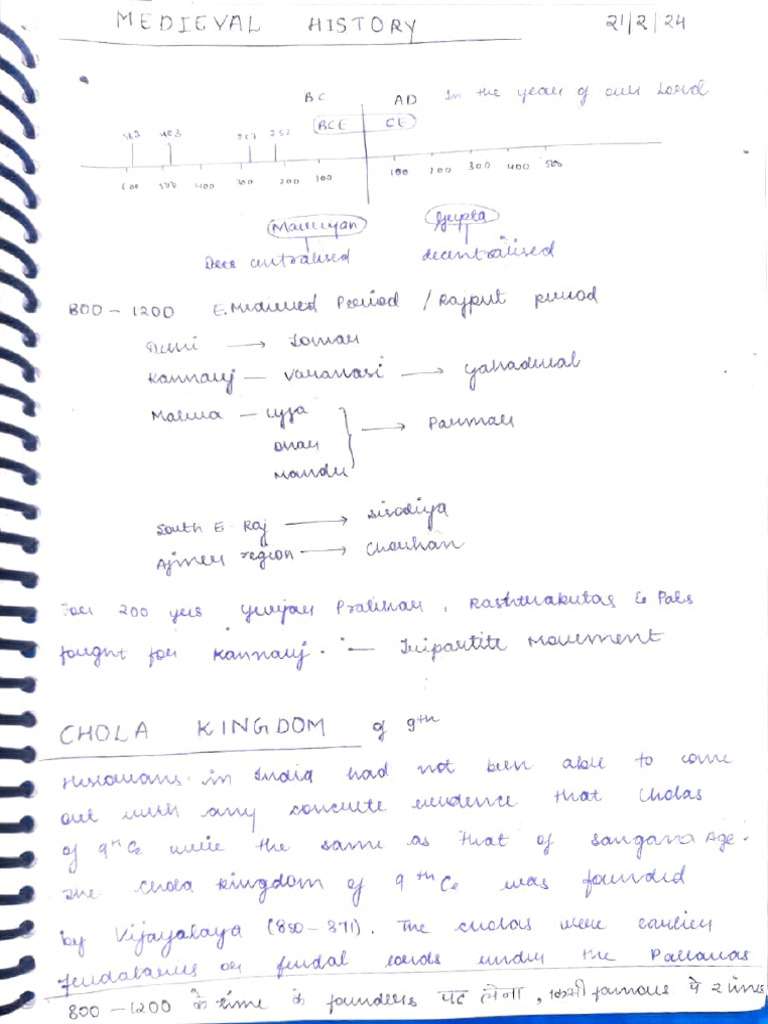 MEDIEVAL HISTORY 21/2/24
BC AD In the year of our Lord
BCE CE
563 483 262 252
600 500 400 300 200 100 100 200 300 400 500
Mauryan Gupta
centralised decentralised
800 - 1200 E. Medieval Period / Rajput period
Delhi → Tomar
Kannauj - Varanasi → Gahadwal
Malwa - Ujja
Dhar → Parmar
Mandu
South E. Raj → Sisodiya
Ajmer region → Chauhan
For 200 yrs Gurjar Pratihar, Rashtrakutas & Pals
fought for Kannauj. — Tripartite Movement
CHOLA KINGDOM of 9th
Historians in India had not been able to come
out with any concrete evidence that Cholas
of 9th Ce were the same as that of Sangama Age.
The Chola Kingdom of 9th Ce was founded
by Vijayalaya (850-871). The cholas were earlier
feudatories or feudal lords under the Pallavas
800 - 1200 के time के founders पढ लेना, किसी famous पे 2 lines